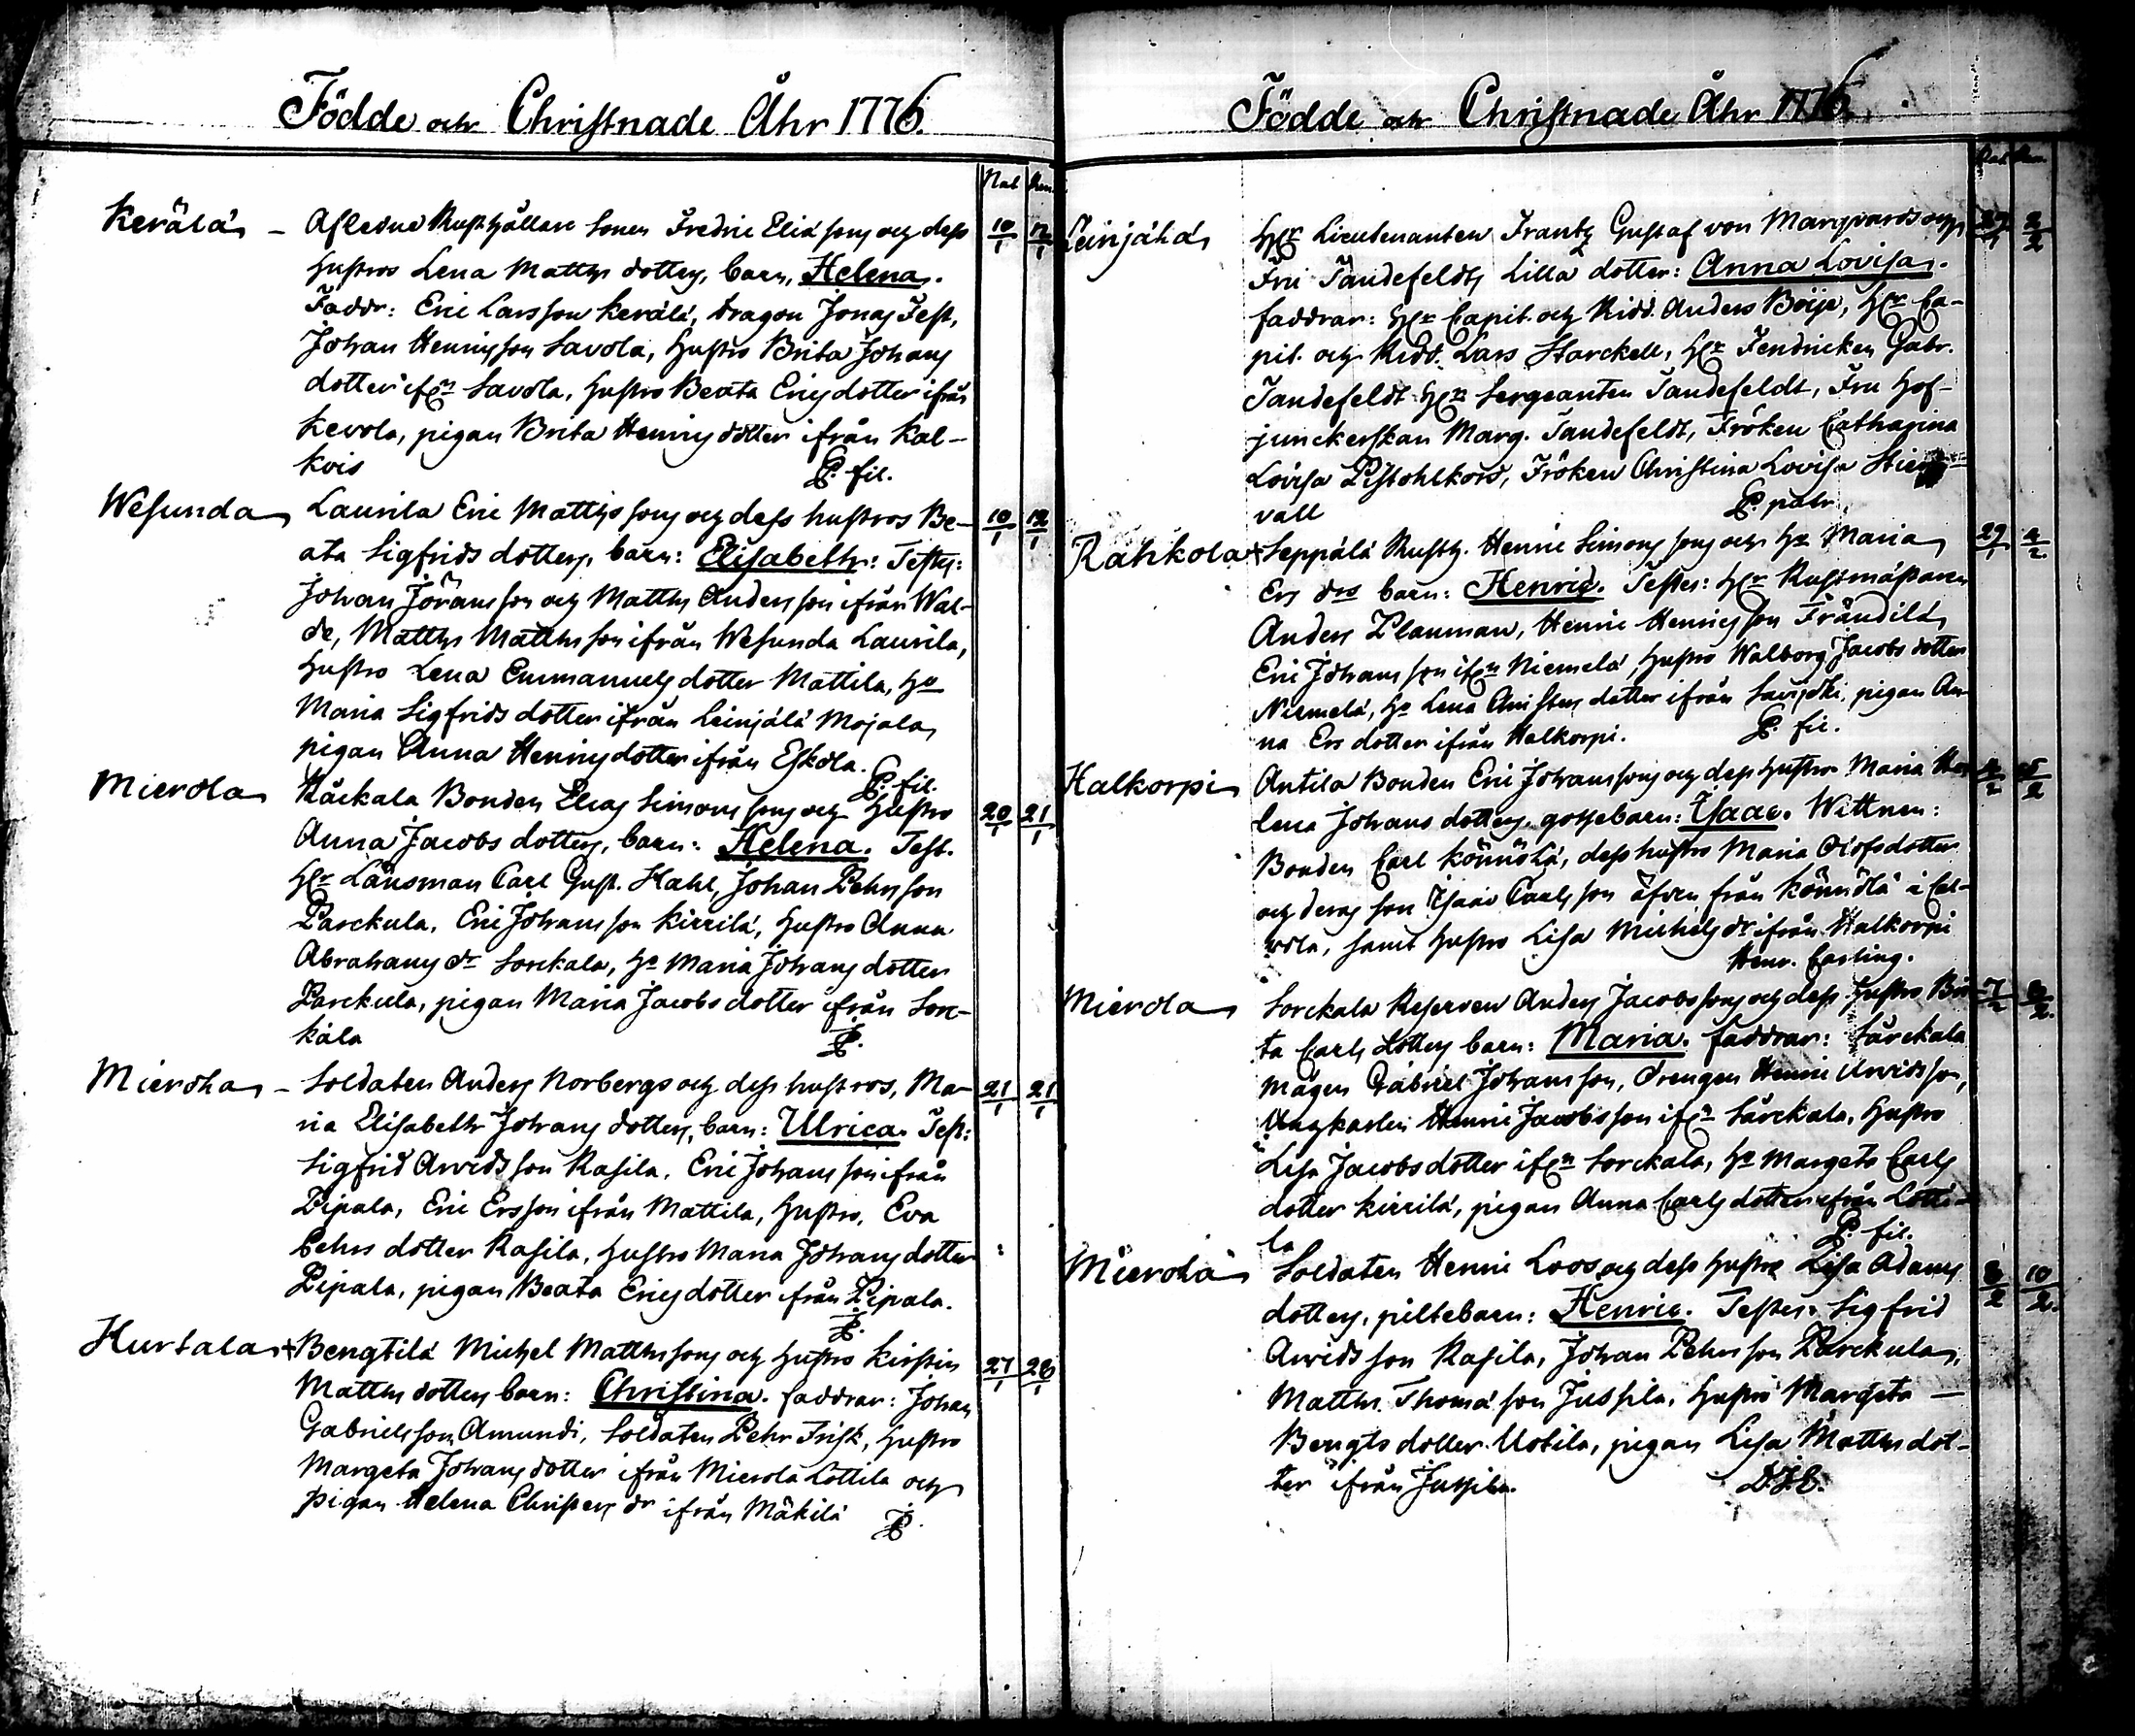 Födde och Christnade Åhr 1776.
Nat. Ren.
Kerälä – Afledne Rusthållare Sonen Fredric Eliæ sons och dess 10/1 12/1
hustros Lena Matths dotters, barn, Helena.
Faddr: Eric Larsson Kerälä, Dragon Jonas Fest,
Johan Henricsson Savola, hustro Brita Johans
dotter ifrn Savola, hustro Beata Ericsdotter ifrån
Kevola, pigan Brita Henricsdotter ifrån Kal-
kois P. fil.
Wesunda Laurila Eric Matthssons och dess hustros Be- 10/1 12/1
ata Sigfrids dotters, barn: Elisabeth: Testes:
Johan Jöransson och Matths Andersson ifrån Wal-
de, Matths Matthsson ifrån Wesunda Laurila,
hustro Lena Emmanuels dotter Mattila, ho
Maria Sigfrids dotter ifrån Leinjälä Mojala,
pigan Anna Henricsdotter ifrån Eskola.
P. fil.
Mierola Bonden Elias Simonssons och hustro 20/1 21/1
Anna Jacobs dotters, barn: Helena. Test.
Hr Länsman Carl Gust. Hahl, Johan Pehrsson
Parckula, Eric Johansson Kirrilä, hustro Anna
Abrahams dr Sorckala, ho Maria Johans dotter
Parckula, pigan Maria Jacobs dotter ifrån Sorc-
kala P.
Mierola – Soldaten Anders Norbergs och dess hustros, Ma- 21/1 21/1
ria Elisabeth Johans dotters, barn: Ulrica. Test:
Sigfrid Arvidsson Rasila, Eric Johansson ifrån
Pipala, Eric Ersson ifrån Mattila, hustro, Eva
Pehrs dotter Rasila, hustro Maria Johans dotter
Pipala, pigan Beata Ericsdotter ifrån Pipala.
P.
Hurtala + Bengtilä Michel Matthssons och hustro Kirstin 27/1 28/1
Matths dotters barn: Christina. faddrar: Johan
Gabrielsson Amundi, Soldaten Pehr Frisk, hustro
Margeta Johans dotter ifrån Mierola Lottila och
pigan Helena Christers dr ifrån Mäkilä P.
Födde och Christnade Åhr 1776.
Nat. Ren.
Leinjälä Hr Lieutenanten Frantz Gustaf von Marqvards och 2/2
Fru Tandefeldts Lilla dotter: Anna Lovisa.
faddrar: Hr Capit. och Ridd. Anders Böije, Hr Ca-
pit. och Ridd. Lars Starckell, Hr Fendricken Gabr.
Tandefeldt Hr Sergeanten Tandefeldt, Fru Hof-
junckerskan Marg. Tandefeldt, Fröken Catharina
Lovisa Pistohlkors, Fröken Christina Lovisa
vall P. patr.
Rahkola + Seppälä Rusth. Henric Simons sons och ho Maria 29/1
Ers drs barn: Henric. Testes: Hr Rustmästaren
Anders Planman, Henric Henricsson Frändilä,
Eric Johansson ifrn Niemelä, hustro Walborg Jacobs dotter
Niemelä, ho Lena Christers dotter ifrån pigan An-
na Ers dotter ifrån Halkorpi. P. fil.
Halkorpi Antila Bonden Eric Johanssons och dess hustro Maria He-
lena Johans dotters, gossebarn: Isaac. Wittnen:
Bonden Carl Könnölä, dess hustro Maria Olofsdotter
och deras son Isaac Carlsson äfven från Könnölä i Cal-
vola, samt hustro Lisa Michels dr ifrån Halkorpi
Henr. Carling.
Mierola Sorckala Reserven Anders Jacobssons och dess hustro Bri- 7/2 8/2
ta Carls dotters barn: Maria. faddrar: Särckala
mågen Gabriel Johansson, drengen Henric Arvidsson,
Ungkarlen Henric Jacobsson ifrn Särckala, hustro
Lisa Jacobsdotter ifrn Sorckala, ho Margeta Carls
dotter Kirrilä, pigan Anna Carls dotter ifrån Lotti-
la P. fil.
Mierola Soldaten Henric Loos och dess hustro Lisa Adams 8/2 10/2
dotters, piltebarn: Henric. Testes: Sigfrid
Arvidsson Rasila, Johan Pehrsson Parckula,
Matths Thomæ son Jussila, hustro Margeta –
Bengts dotter Uotila, pigan Lisa Matths dot-
ter ifrån Jussila. D.J.C.